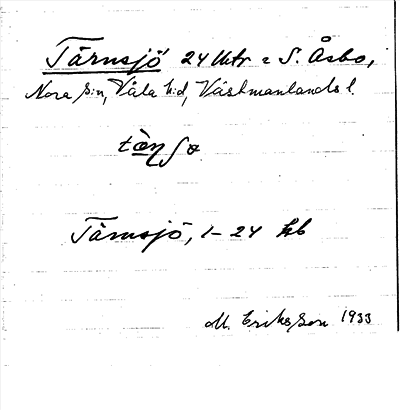 Tärnsjö 24 Mtr = S. Åsbo,
Nora s:n, Våla h:d, Västmanlands l.
tæ̀nʃø
Tärnsjö, 1–24 jb
M. Eriksson 1933